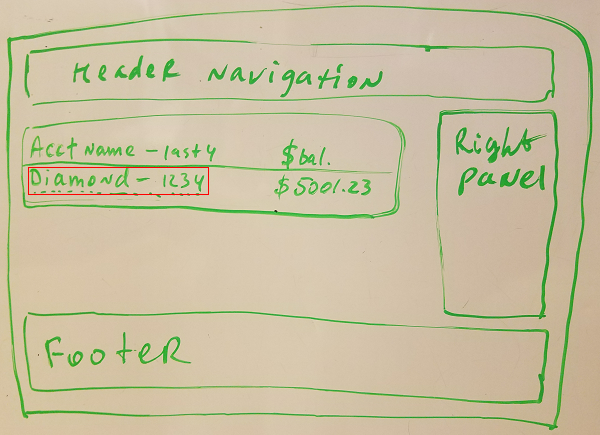 Header Navigation
Acct Name - last 4 $bal.
Diamond - 1234 $5001.23
Right
Panel
Footer